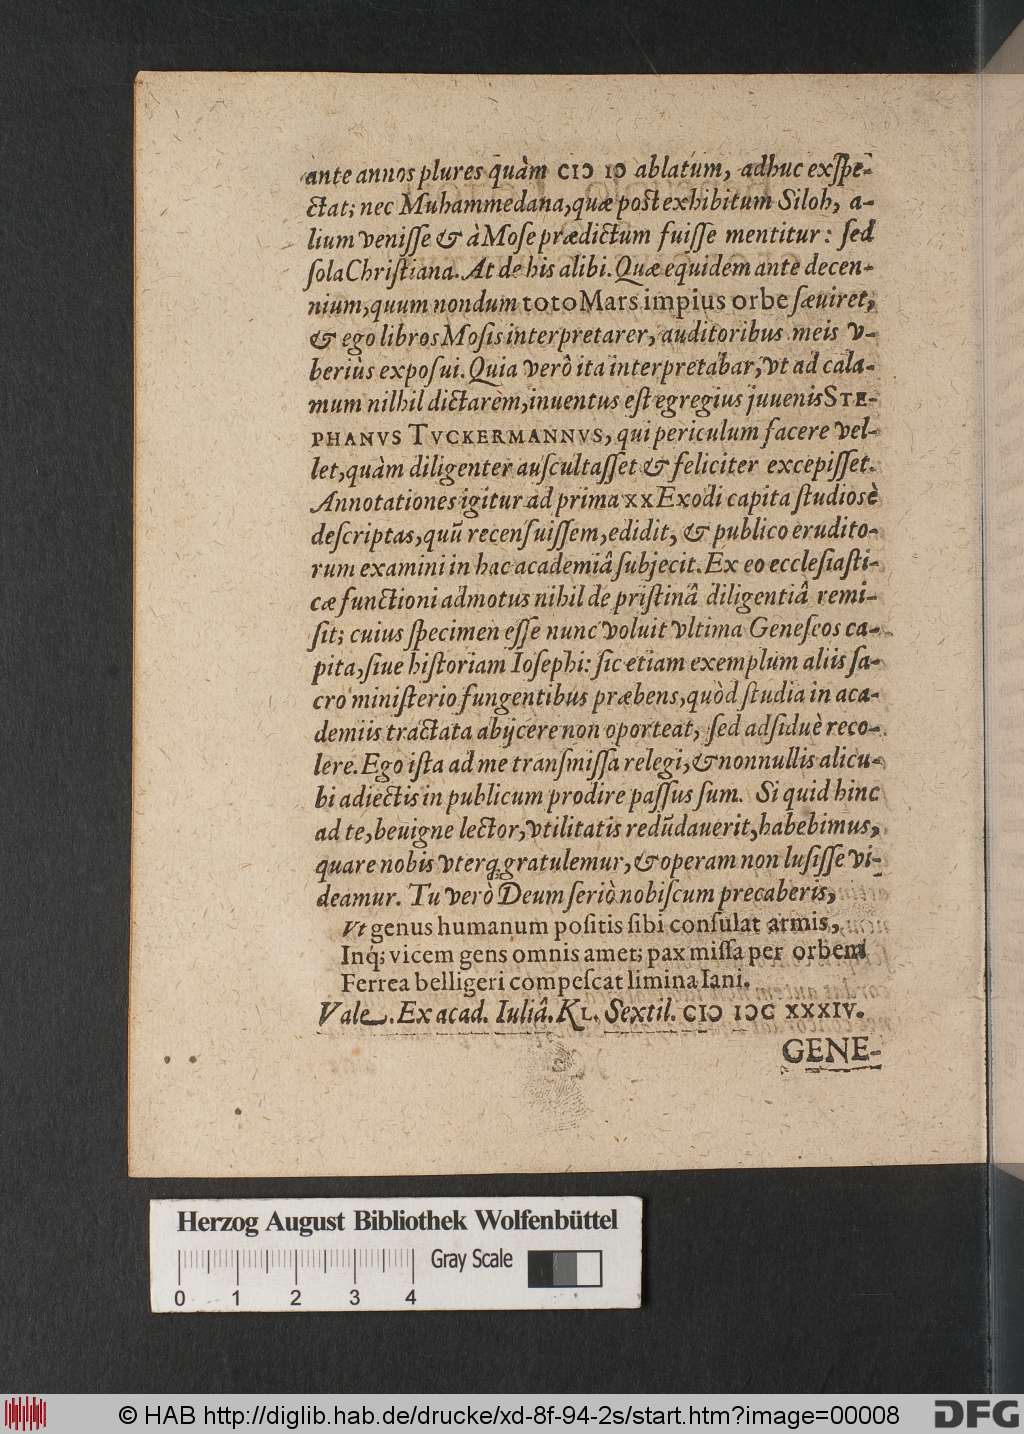 ante annos plures quàm CIↃ IↃ ablatum, adhuc exſpe-
ctat; nec Muhammedana, quæ poſt exhibitum Siloh, a-
lium veniſſe & à Moſe prædictum fuiſſe mentitur: ſed
ſola Chriſtiana. At de his alibi. Quæ equidem ante decen-
nium, quum nondum toto Mars impius orbe ſæuiret,
& ego libros Moſis interpretarer, auditoribus meis v-
beriùs expoſui. Quia verò ita interpretabar, vt ad cala-
mum nihil dictarèm, inuentus eſt egregius juuenis STE-
PHANVS TVCKERMANNVS, qui periculum facere vel-
let, quàm diligenter auſcultaſſet & feliciter excepiſſet.
Annotationes igitur ad prima XX Exodi capita ſtudiosè
deſcriptas, quũ recenſuiſſem, edidit, & publico erudito-
rum examini in hac academiâ ſubjecit. Ex eo eccleſiaſti-
cæ functioni admotus nihil de priſtinâ diligentiâ remi-
ſit; cuius ſpecimen eſſe nunc voluit vltima Geneſeos ca-
pita, ſiue hiſtoriam Ioſephi: ſic etiam exemplum aliis ſa-
cro miniſterio fungentibus præbens, quòd ſtudia in aca-
demiis tractata abijcere non oporteat, ſed adſiduè reco-
lere. Ego iſta ad me tranſmiſſa relegi, & nonnullis alicu-
bi adiectis in publicum prodire paſſus ſum. Si quid hinc
ad te, beuigne lector, vtilitatis redũdauerit, habebimus,
quare nobis vterq; gratulemur, & operam non luſiſſe vi-
deamur. Tu verò Deum ſeriò nobiſcum precaberis,
Vt genus humanum poſitis ſibi conſulat armis,
Inq; vicem gens omnis amet; pax miſſa per orbem
Ferrea belligeri compeſcat limina Iani.
Vale. Ex acad. Iuliâ. KL. Sextil. CIↃ IↃC XXXIV.
GENE-
Herzog August Bibliothek Wolfenbüttel
Gray Scale
0 1 2 3 4
© HAB http://diglib.hab.de/drucke/xd-8f-94-2s/start.htm?image=00008
DFG